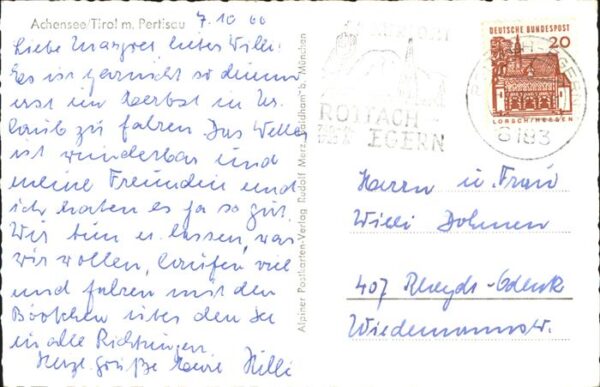 Achensee/Tirol m. Pertisau
7.10 66
Liebe Margret lieber Willi!
Es ist garnicht so dumm
erst im Herbst in Ur-
laub zu fahren. Das Wetter
ist wunderbar und
meine Freundin und
ich haben es ja so gut.
Wir tun u. lassen, was
wir wollen, laufen viel
und fahren mit den
Böötchen über den See
in alle Richtungen.
Herzl. Grüße Eure Hilli
Alpiner Postkarten-Verlag Rudolf Merz, Baldham b. München
ROTTACH
EGERN
8183
DEUTSCHE BUNDESPOST
20
LORSCH/HESSEN
Herrn u. Frau
Willi Dohmen
407 Rheydt-Odenk.
Wiedemannstr.